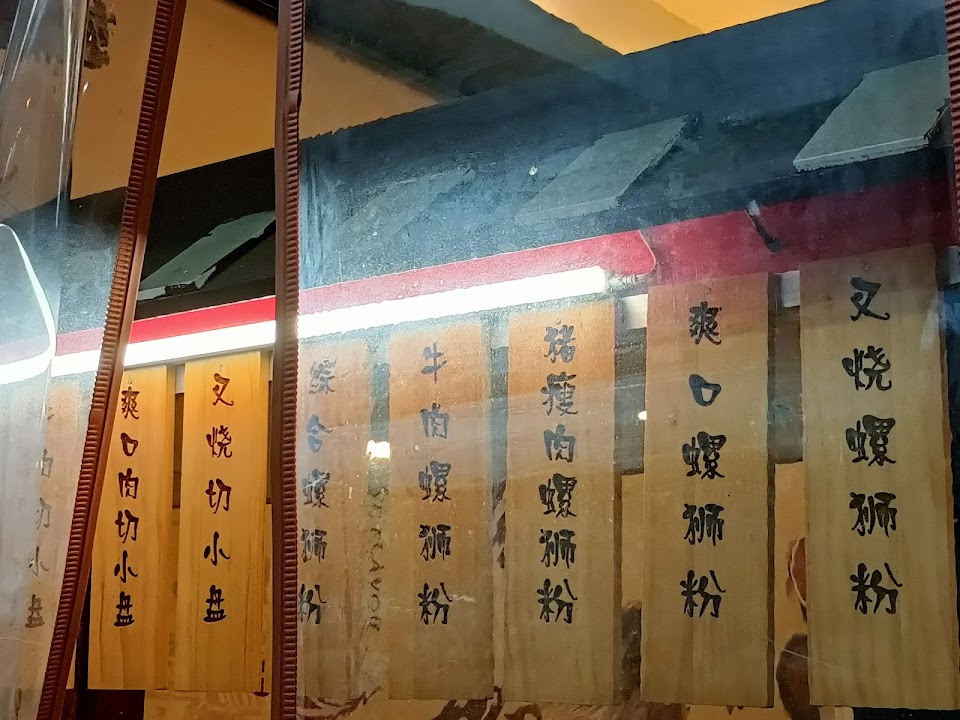 叉烧螺狮粉
爽口螺狮粉
猪瘦肉螺狮粉
牛肉螺狮粉
综合螺狮粉
叉烧切小盘
爽口肉切小盘
肉切小盘